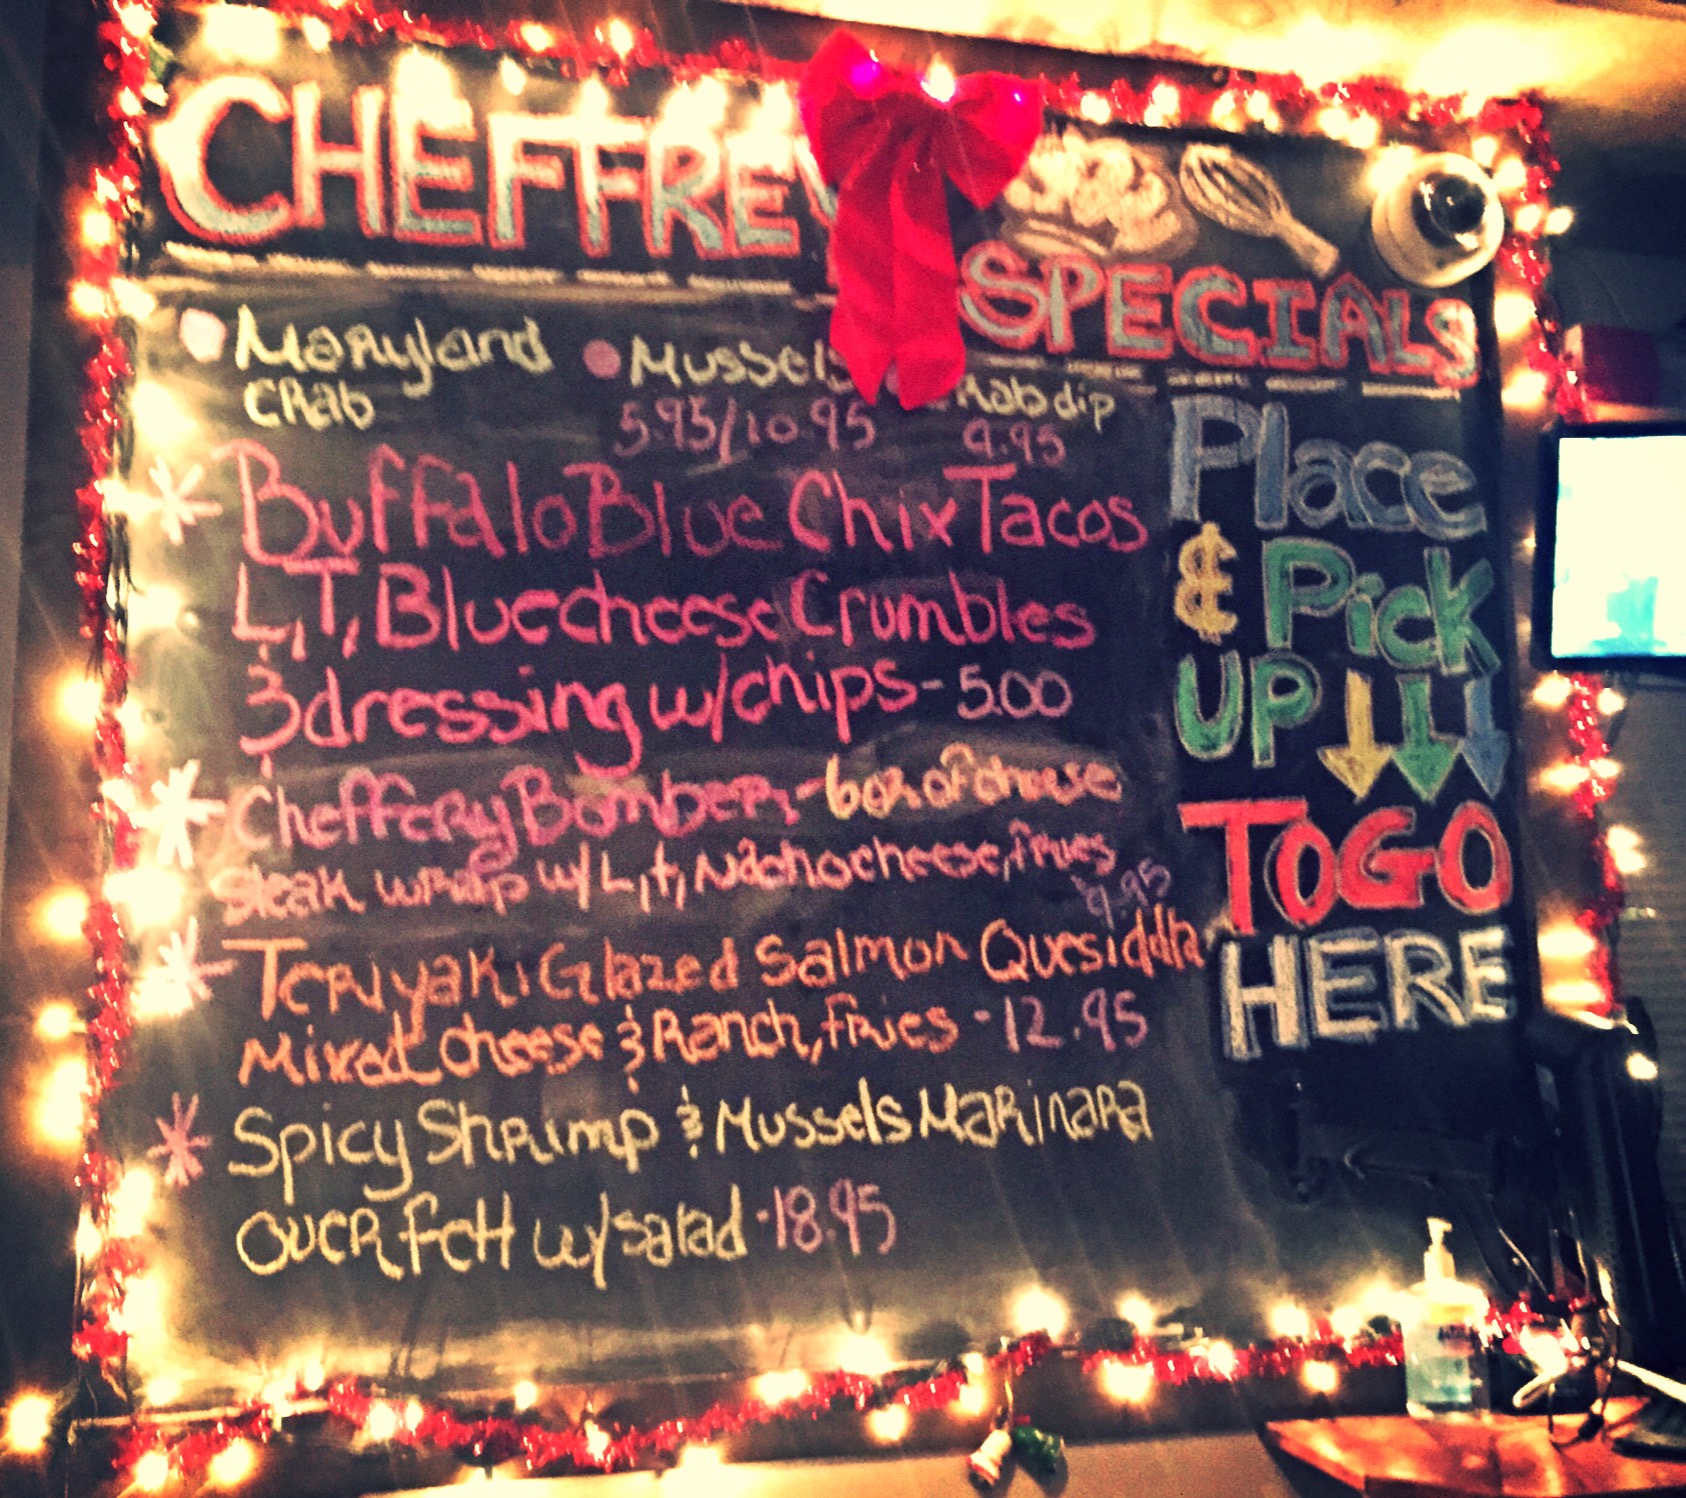 CHEFFREY
SPECIALS
Maryland
Crab
Mussels
5.95/10.95
Crab dip
9.95
Buffalo Blue Chix Tacos
L,T, Bluecheese Crumbles
& dressing w/chips - 5.00
Cheffery Bomber - 6oz of cheese
steak wrap w/ L,t, Nacho cheese, fries
9.95
Teriyaki Glazed Salmon Quesiddta
Mixed Cheese & Ranch, fries - 12.95
Spicy Shrimp & Mussels Marinara
over fett w/salad - 18.95
Place
& Pick
UP
TOGO
HERE